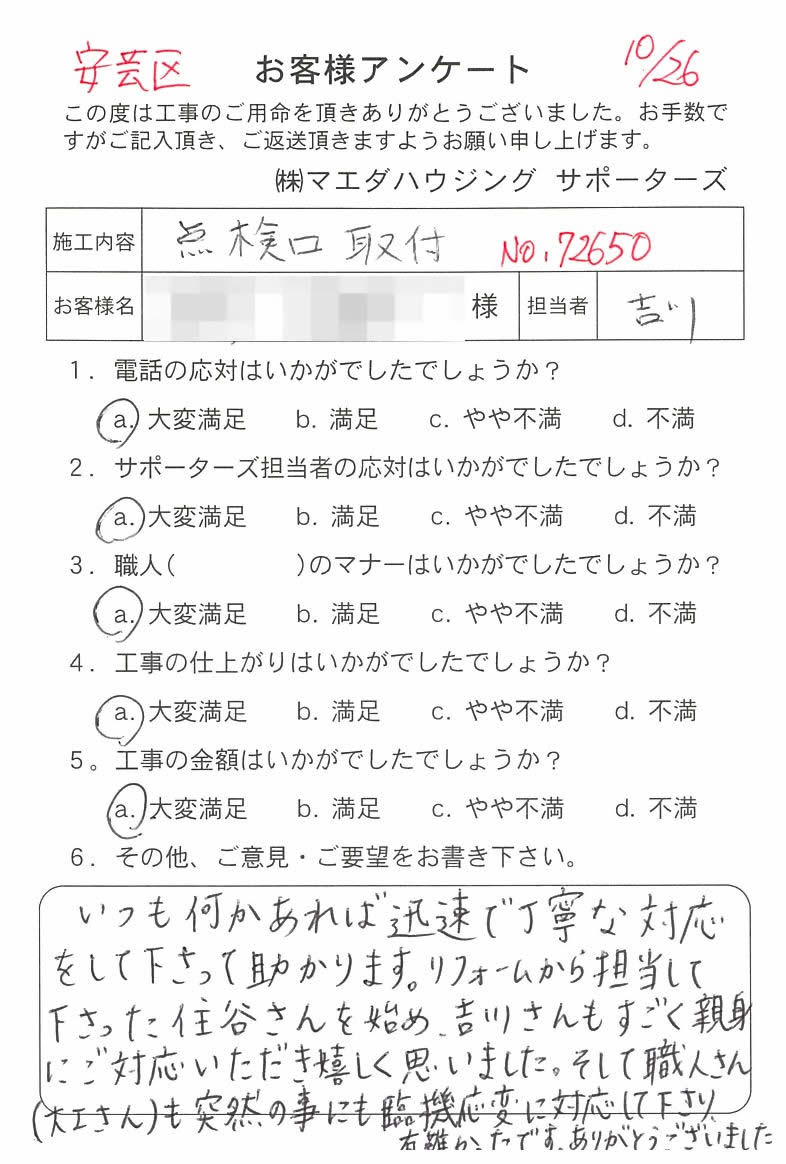 安芸区 お客様アンケート 10/26
この度は工事のご用命を頂きありがとうございました。お手数で
すがご記入頂き、ご返送頂きますようお願い申し上げます。
㈱マエダハウジング サポーターズ
施工内容 点検口取付 No.72650
お客様名 様 担当者 吉川
1. 電話の応対はいかがでしたでしょうか？
a. 大変満足 b. 満足 c. やや不満 d. 不満
2. サポーターズ担当者の応対はいかがでしたでしょうか？
a. 大変満足 b. 満足 c. やや不満 d. 不満
3. 職人( )のマナーはいかがでしたでしょうか？
a. 大変満足 b. 満足 c. やや不満 d. 不満
4. 工事の仕上がりはいかがでしたでしょうか？
a. 大変満足 b. 満足 c. やや不満 d. 不満
5。工事の金額はいかがでしたでしょうか？
a. 大変満足 b. 満足 c. やや不満 d. 不満
6. その他、ご意見・ご要望をお書き下さい。
いつも何かあれば迅速で丁寧な対応
をして下さって助かります。リフォームから担当して
下さった住谷さんを始め、吉川さんもすごく親身
にご対応いただき嬉しく思いました。そして職人さん
(大工さん)も突然の事にも臨機応変に対応して下さり、
有難かったです。ありがとうございました